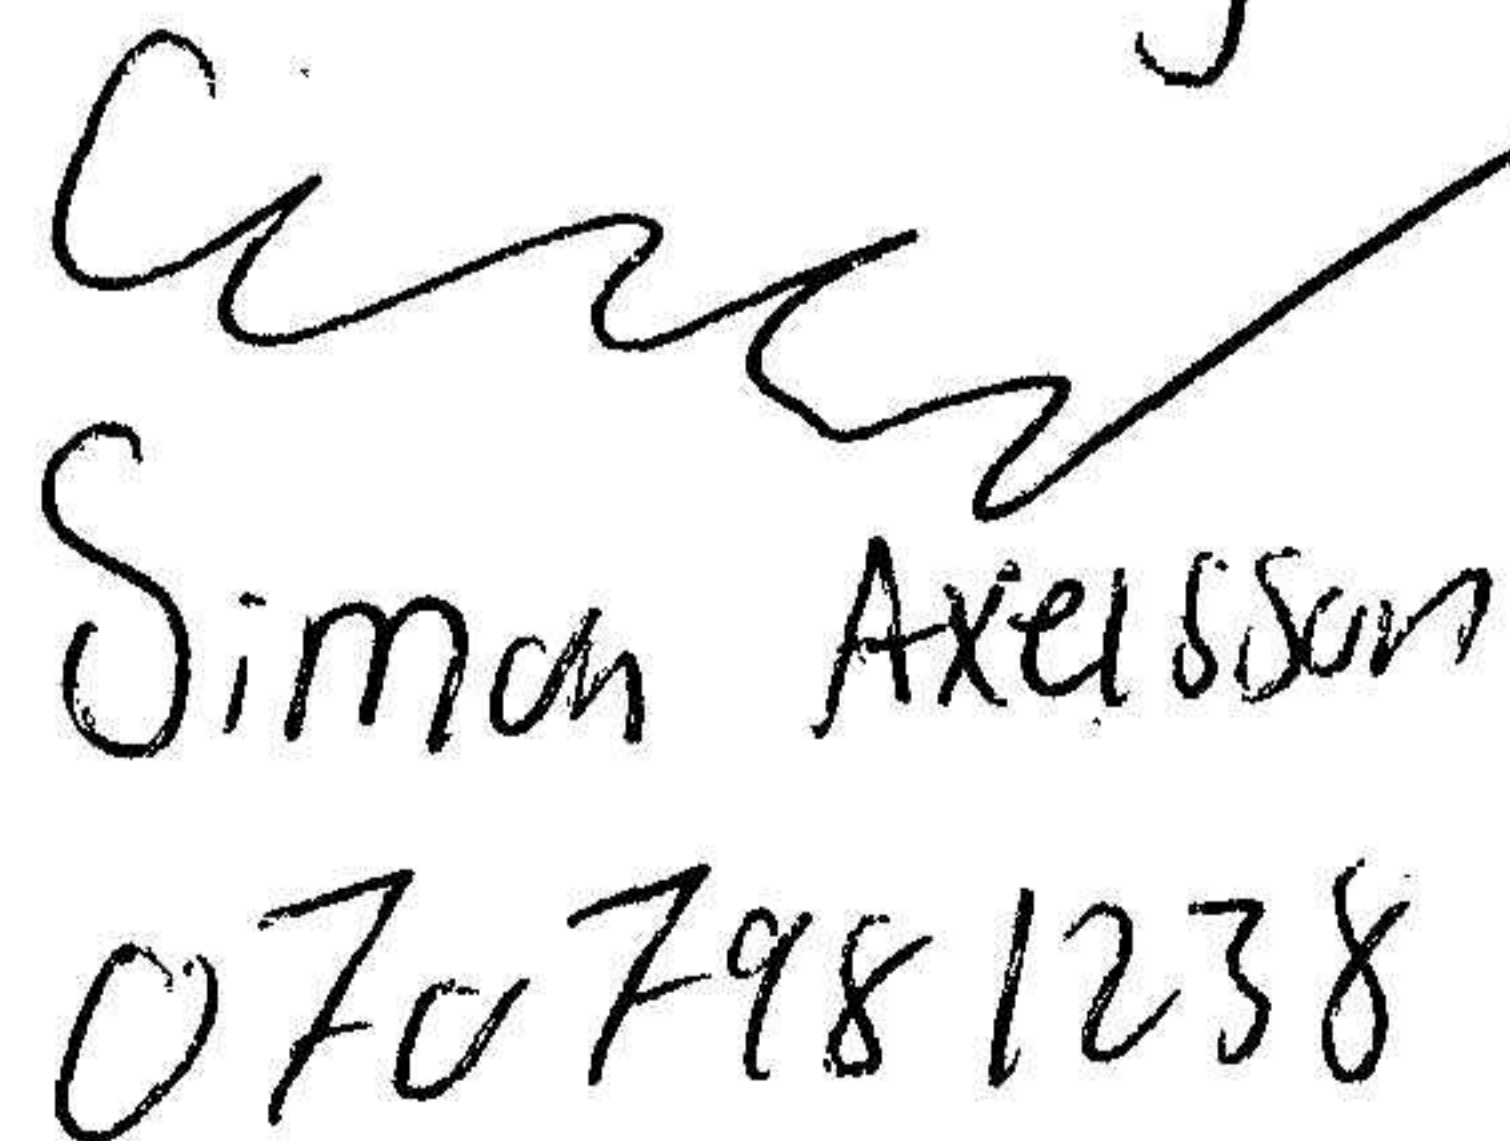 Simon Axelsson
070 798 1238